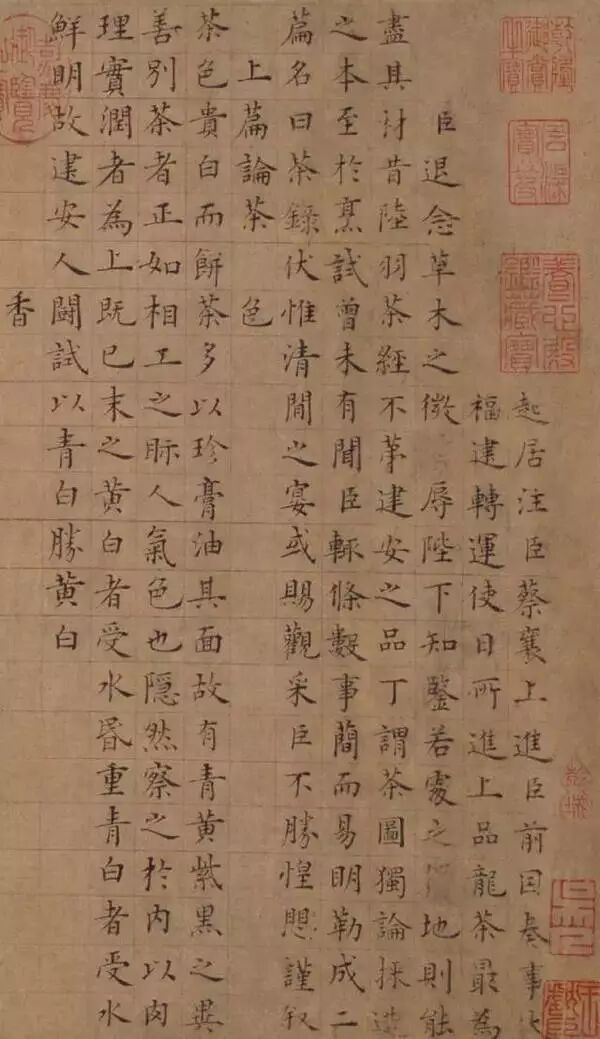 起居注臣蔡襄上進臣前因奏事
福建轉運使日所進上品龍茶最為
臣退念草木之微辱陛下知鑒若處之地則能
盡其材昔陸羽茶經不第建安之品丁謂茶圖獨論採造
之本至於烹試曾未有聞臣輒條數事簡而易明勒成二
篇名曰茶錄伏惟清閒之宴或賜觀采臣不勝惶愳謹叙
上篇論茶 色
茶色貴白而餅茶多以珍膏油其面故有青黃紫黑之異
善別茶者正如相工之眎人氣色也隱然察之於內以肉
理實潤者為上既已末之黃白者受水昏重青白者受水
鮮明故建安人鬭試以青白勝黃白
香
石渠寶笈
養心殿鑑藏寶